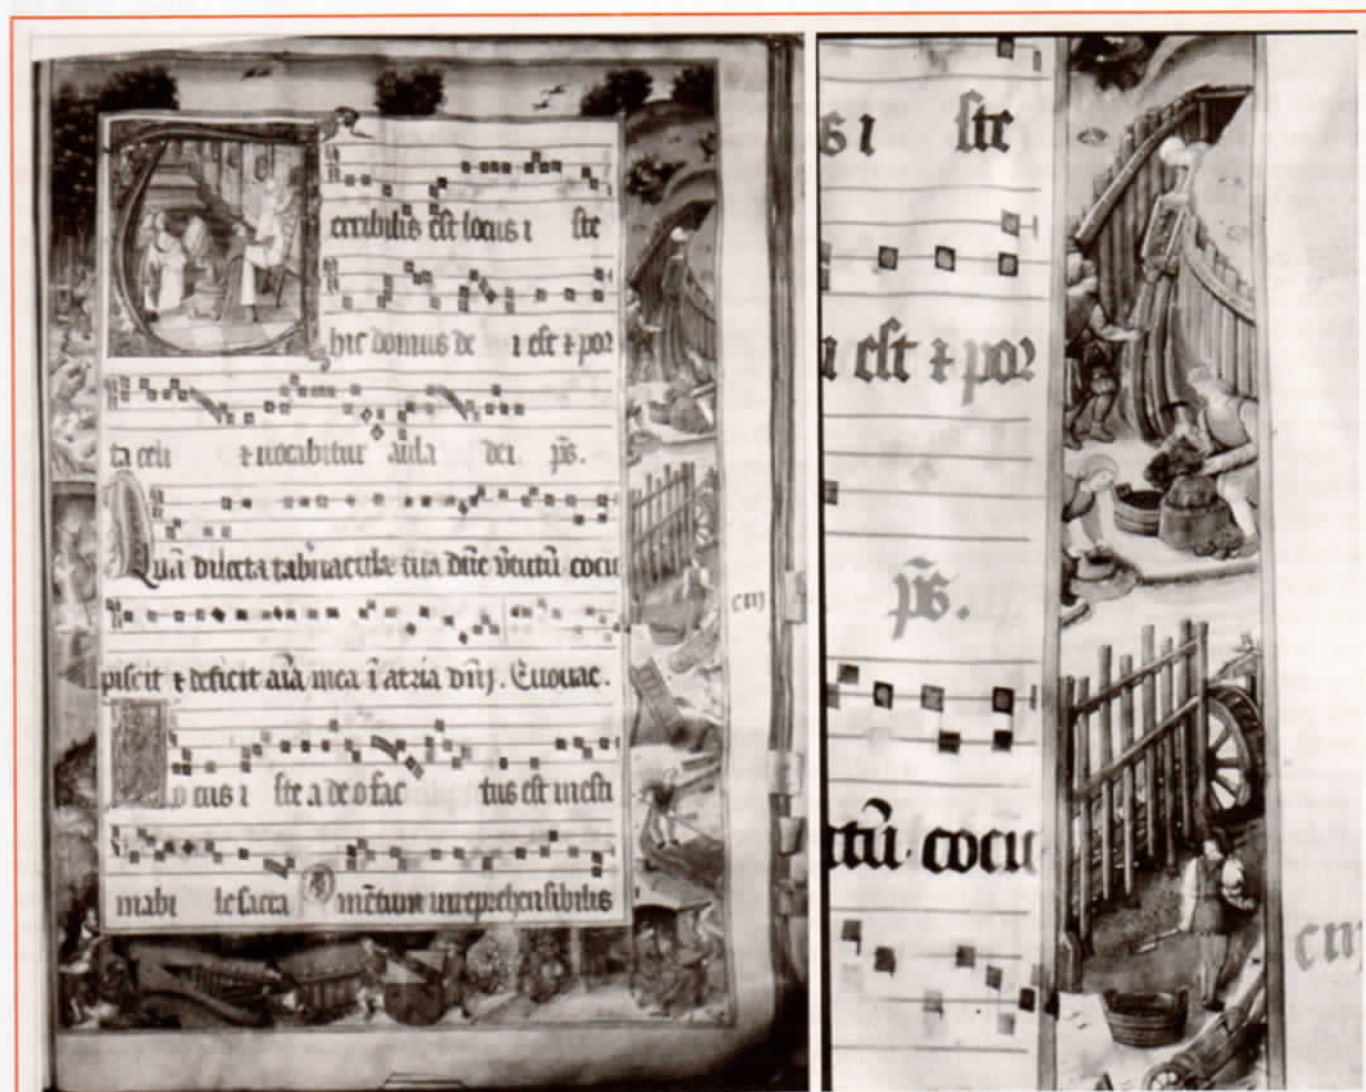 erribilis est locus i ste
hic domus de i est ⁊ por
ta celi ⁊ uocabitur aula dei p̄s.
Quā dilecta tab̾nacula tua dn̄e v̾tutū cōcu
piscit ⁊ deficit aīa mea ī atria dn̄j. Euouae.
ocus i ste a deo fac tus est inesti
mabi le sacra mētum inreprehensibilis
ciij
s i ste
i est ⁊ por
p̄s.
tutū cōcu
ciij